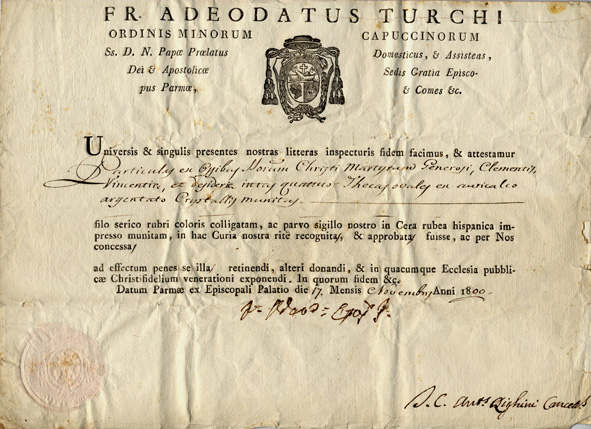 FR. ADEODATUS TURCHI
ORDINIS MINORUM CAPUCCINORUM
Ss. D. N. Papæ Prælatus Domesticus, & Assistens,
Dei & Apostolicæ Sedis Gratia Episco-
pus Parmæ, & Comes &c.
Universis & singulis presentes nostras litteras inspecturis fidem facimus, & attestamur
Particulas ex Ossibus Christi Martyrum Generosi, Clementis,
Vincentii, et Desiderii intra quatuor Thecas ovales ex auricalco
argentato Crystallo munitas
filo serico rubri coloris colligatam, ac parvo sigillo nostro in Cera rubea hispanica im-
presso munitam, in hac Curia nostra ritè recognitas, & approbatas fuisse, ac per Nos
concessas
ad effectum penes se illas retinendi, alteri donandi, & in quacumque Ecclesia pubbli-
cæ Christifidelium venerationi exponendi. In quorum fidem &c.
Datum Parmæ ex Episcopali Palatio die 17. Mensis Novembris Anni 1800.
B. C. Ant.s Righini Cancell.s